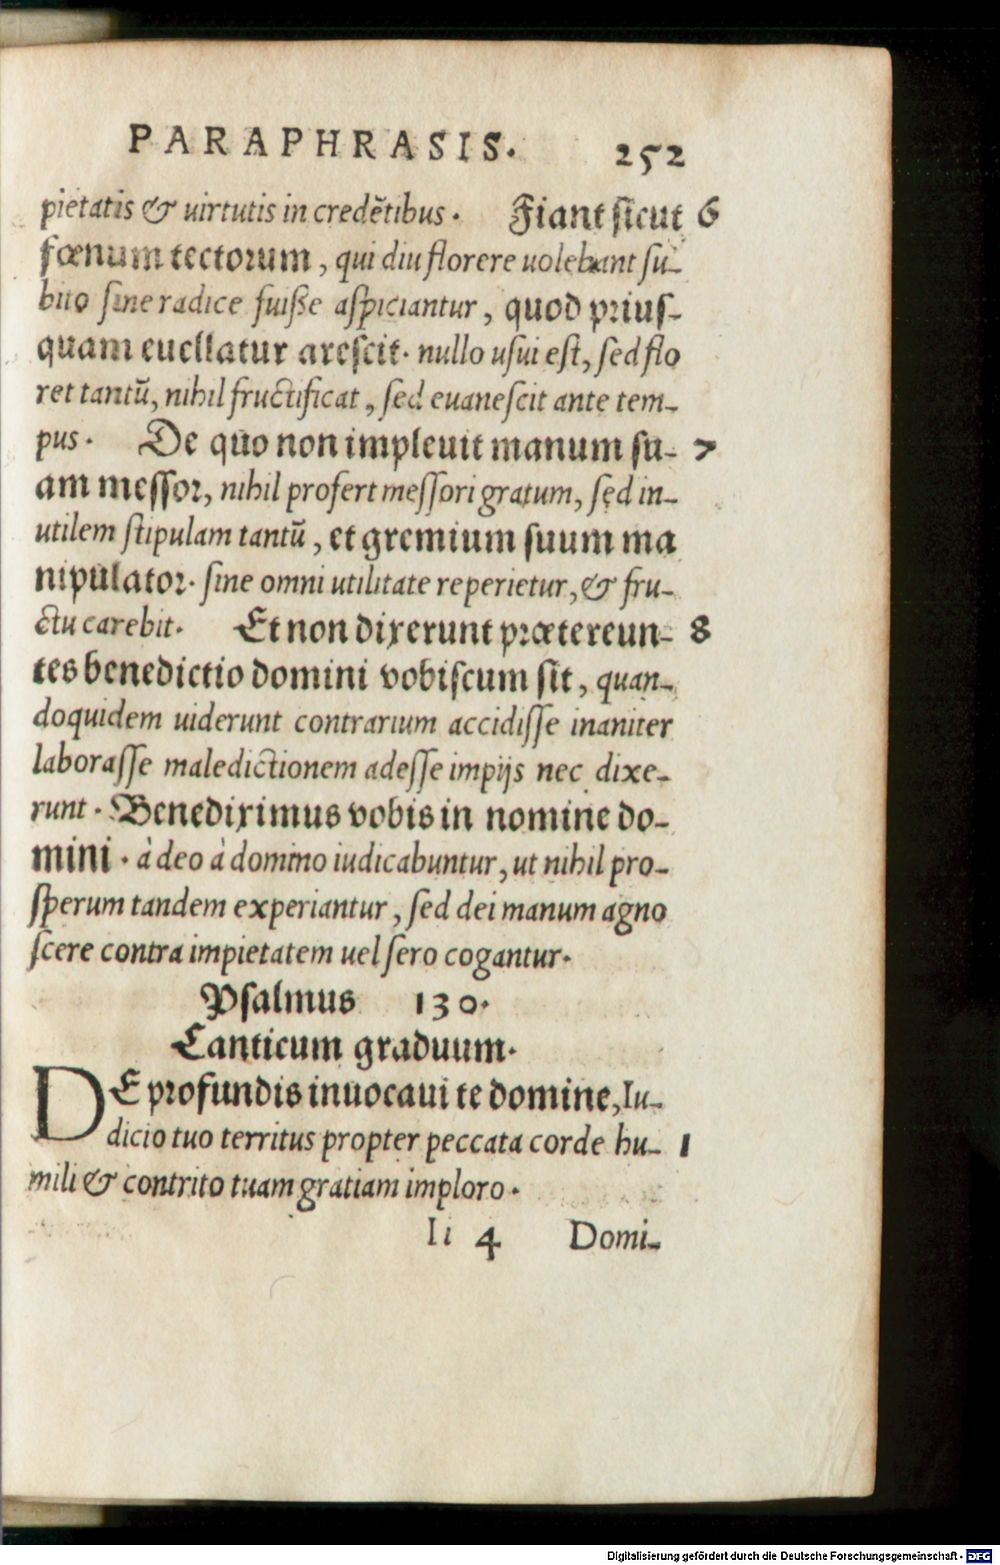 PARAPHRASIS. 252
pietatis & uirtutis in credẽtibus. Fiant sicut 6
fœnum tectorum, qui diu florere uolebant su-
bito sine radice fuisse aspiciantur, quod prius-
quam euellatur arescit. nullo usui est, sed flo
ret tantũ, nihil fructificat, sed euanescit ante tem-
pus. De quo non impleuit manum su- 7
am messor, nihil profert messori gratum, sed in-
utilem stipulam tantũ, et gremium suum ma
nipulator. sine omni utilitate reperietur, & fru-
ctu carebit. Et non dixerunt prætereun- 8
tes benedictio domini vobiscum sit, quan-
doquidem uiderunt contrarium accidisse inaniter
laborasse maledictionem adesse impijs nec dixe-
runt. Benediximus vobis in nomine do-
mini. à deo à domino iudicabuntur, ut nihil pro-
sperum tandem experiantur, sed dei manum agno
scere contra impietatem uel sero cogantur.
Psalmus 130.
Canticum graduum.
DE profundis inuocaui te domine, Iu-
dicio tuo territus propter peccata corde hu- 1
mili & contrito tuam gratiam imploro.
Ii 4 Domi-
Digitalisierung gefördert durch die Deutsche Forschungsgemeinschaft - DFG